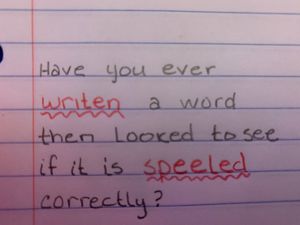 Have you ever
writen a word
then looked to see
if it is speeled
correctly?